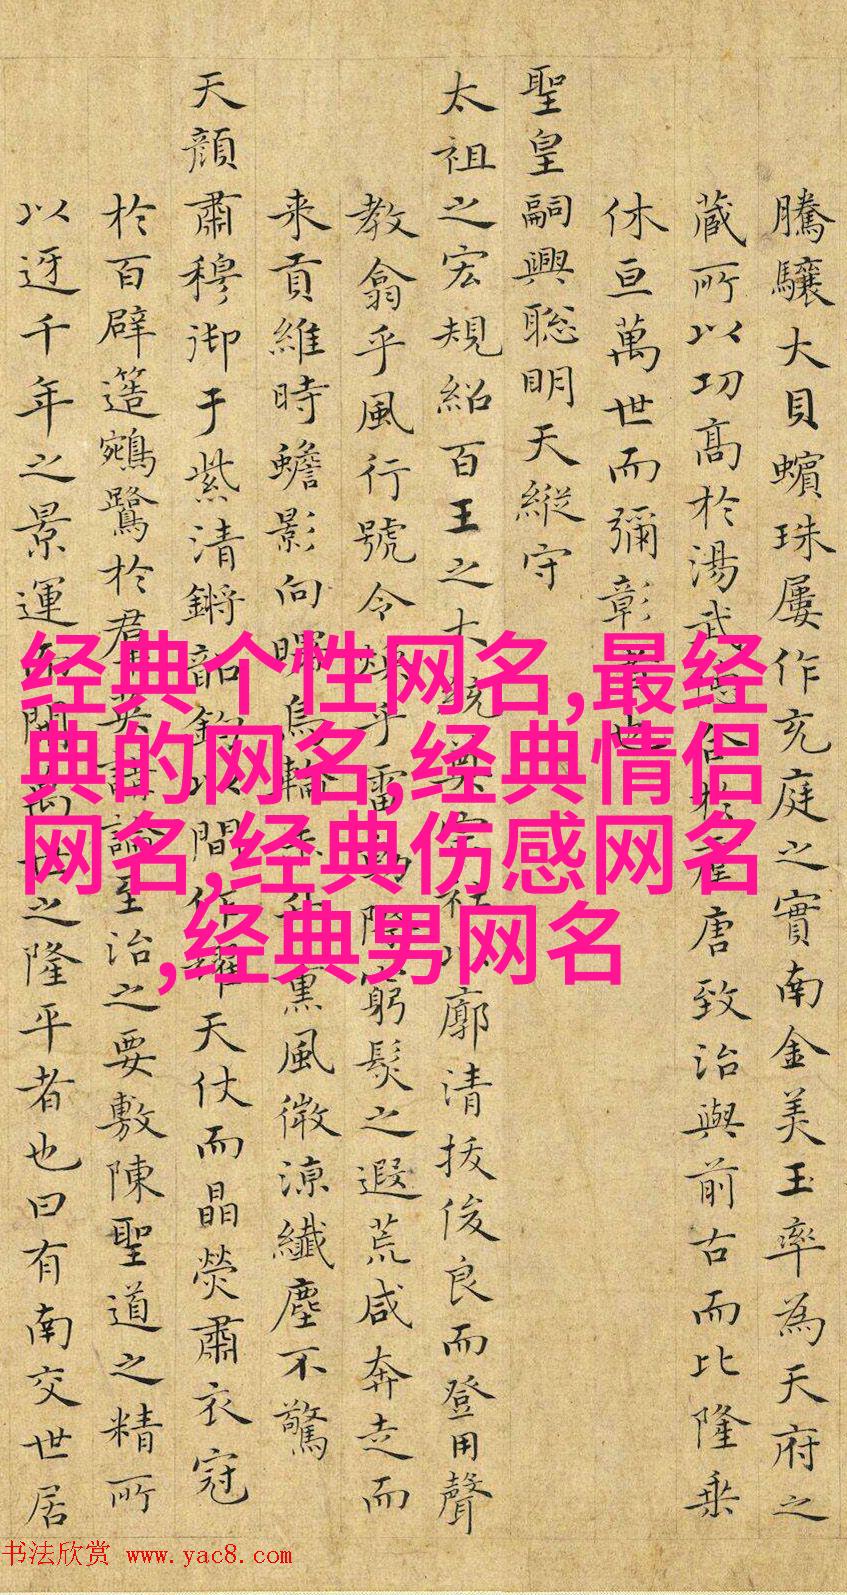 騰驤大貝蠙珠屢作充庭之實南金美玉率為天府之
藏所以功高於湯武唐致治與前古而比隆乗
休亘萬世而彌彰也
聖皇嗣興聡明天縱守
太祖之宏規紹百王之大統以廓清拔俊良而登用聲
教翕乎風行號令乎雷窮髮之遐荒咸奔走而
来貢維時蟾影向烏輪熏風微凉纖塵不驚
天顔肅穆御于紫清鏘韶鈞以間作耀天仗而晶熒肅衣冠
於百辟簉鵷鷺於君論至治之要敷陳聖道之精所
以迓千年之景運開萬世之隆平者也曰有南交世居
经典个性网名,最经
典的网名,经典情侣
网名,经典伤感网名
,经典男网名
书法欣赏 www.yac8.com